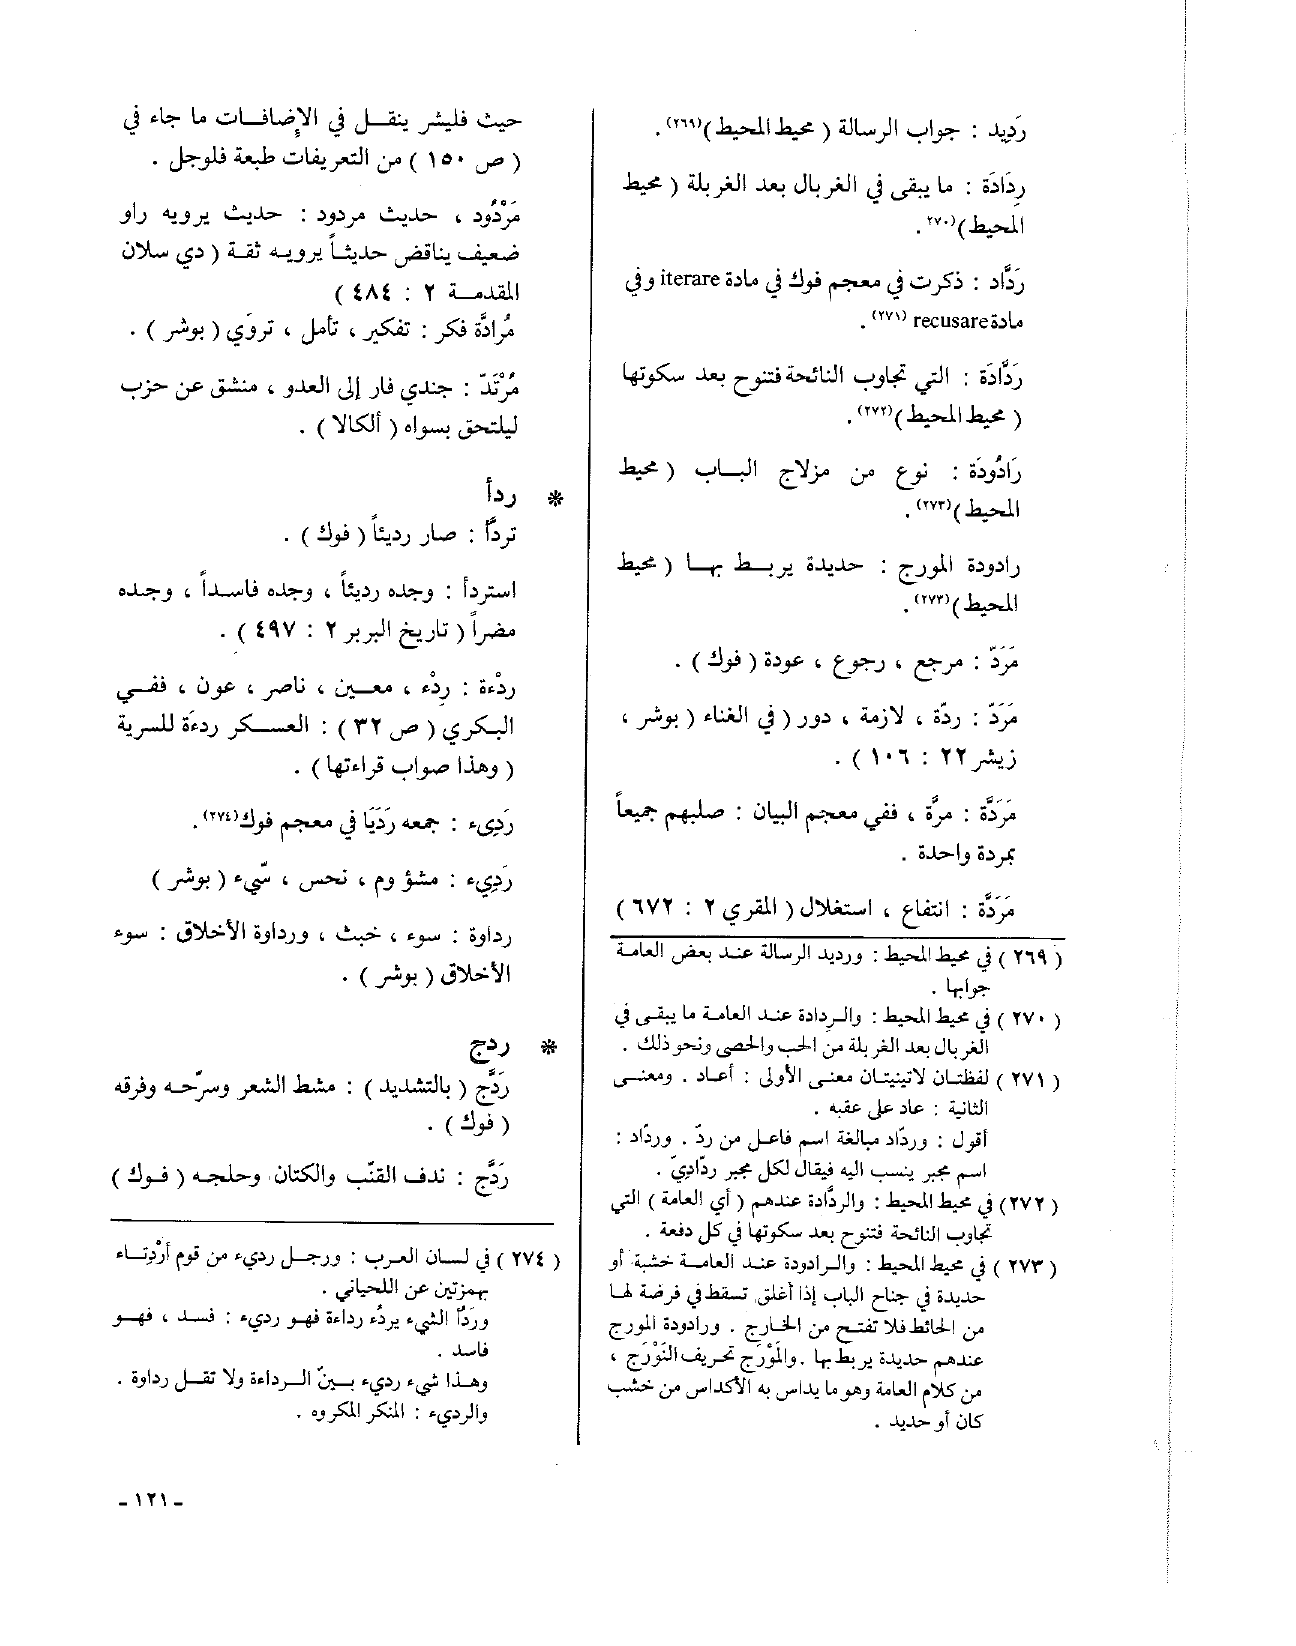 رَدِيد : جواب الرسالة ( محيط المحيط )(٢٦٩) .
رِدَادَة : ما يبقى في الغربال بعد الغربلة ( محيط
المحيط )(٢٧٠ .
رَدَّاد : ذكرت في معجم فوك في مادة iterare وفي
مادة recusare (٢٧١) .
رَدَّادَة : التي تجاوب النائحة فتنوح بعد سكوتها
( محيط المحيط )(٢٧٢) .
رَادُودَة : نوع من مزلاج الباب ( محيط
المحيط )(٢٧٣) .
رادودة المورج : حديدة يربط بها ( محيط
المحيط )(٢٧٣) .
مَرَدّ : مرجع ، رجوع ، عودة ( فوك ) .
مَرَدّ : ردّة ، لازمة ، دور ( في الغناء ( بوشر ،
زيشر ٢٢ : ١٠٦ ) .
مَرَدَّة : مرَّة ، ففي معجم البيان : صلبهم جميعاً
بمردة واحدة .
مَرَدَّة : انتفاع ، استغلال ( المقري ٢ : ٦٧٢ )
( ٢٦٩ ) في محيط المحيط : ورديد الرسالة عند بعض العامة
جوابها .
( ٢٧٠ ) في محيط المحيط : والردادة عند العامة ما يبقى في
الغربال بعد الغربلة من الحب والحصى ونحو ذلك .
( ٢٧١ ) لفظتان لاتينيتان معنى الأولى : أعاد . ومعنى
الثانية : عاد على عقبه .
أقول : وردّاد مبالغة اسم فاعل من ردّ . وردّاد :
اسم مجبر ينسب اليه فيقال لكل مجبر ردّاديّ .
( ٢٧٢) في محيط المحيط : والردَّادة عندهم ( أي العامة ) التي
تجاوب النائحة فتنوح بعد سكوتها في كل دفعة .
( ٢٧٣ ) في محيط المحيط : والرادودة عند العامة خشبة أو
حديدة في جناح الباب إذا أغلق تسقط في فرضة لها
من الحائط فلا تفتح من الخارج . ورادودة المورج
عندهم حديدة يربط بها . والمَوْرَج تحريف النَوْرَج ،
من كلام العامة وهو ما يداس به الأكداس من خشب
كان أو حديد .
حيث فليشر ينقل في الإضافات ما جاء في
( ص ١٥٠ ) من التعريفات طبعة فلوجل .
مَرْدُود ، حديث مردود : حديث يرويه راو
ضعيف يناقض حديثاً يرويه ثقة ( دي سلان
المقدمة ٢ : ٤٨٤ )
مُرادَّة فكر : تفكير ، تأمل ، تروّي ( بوشر ) .
مُرْتَدّ : جندي فار إلى العدو ، منشق عن حزب
ليلتحق بسواه ( ألكالا ) .
* ردأ
تردَّأ : صار رديئاً ( فوك ) .
استردأ : وجده رديئاً ، وجده فاسداً ، وجده
مضراً ( تاريخ البربر ٢ : ٤٩٧ ) .
ردْءة : ردْء ، معين ، ناصر ، عون ، ففي
البكري ( ص ٣٢ ) : العسكر ردءَة للسرية
( وهذا صواب قراءتها ) .
رَدِيء : جمعه رَدَيَا في معجم فوك(٢٧٤) .
رَدِيء : مشؤوم ، نحس ، سّيء ( بوشر )
رداوة : سوء ، خبث ، ورداوة الأخلاق : سوء
الأخلاق ( بوشر ) .
* ردج
رَدَّج ( بالتشديد ) : مشط الشعر وسرّحه وفرقه
( فوك ) .
رَدَّج : ندف القنّب والكتان وحلجه ( فوك )
( ٢٧٤ ) في لسان العرب : ورجل رديء من قوم أرْدِئاء
بهمزتين عن اللحياني .
وردَأ الشيء يردُء رداءة فهو رديء : فسد ، فهو
فاسد .
وهذا شيء رديء بينّ الرداءة ولا تقل رداوة .
والرديء : المنكر المكروه .
- ١٢١ -